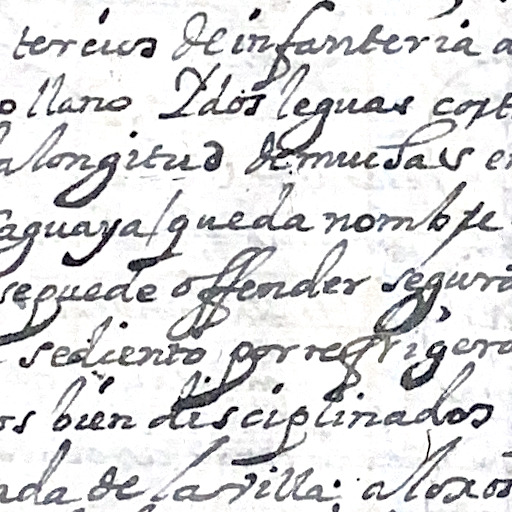 tercios de infanteria a
o llano Y dos leguas cort
la longitud de muchas en
aguaya/ que da nombre
se puede offender segura
sediento por refrigera
os bien disciplinados
ada de la villa;